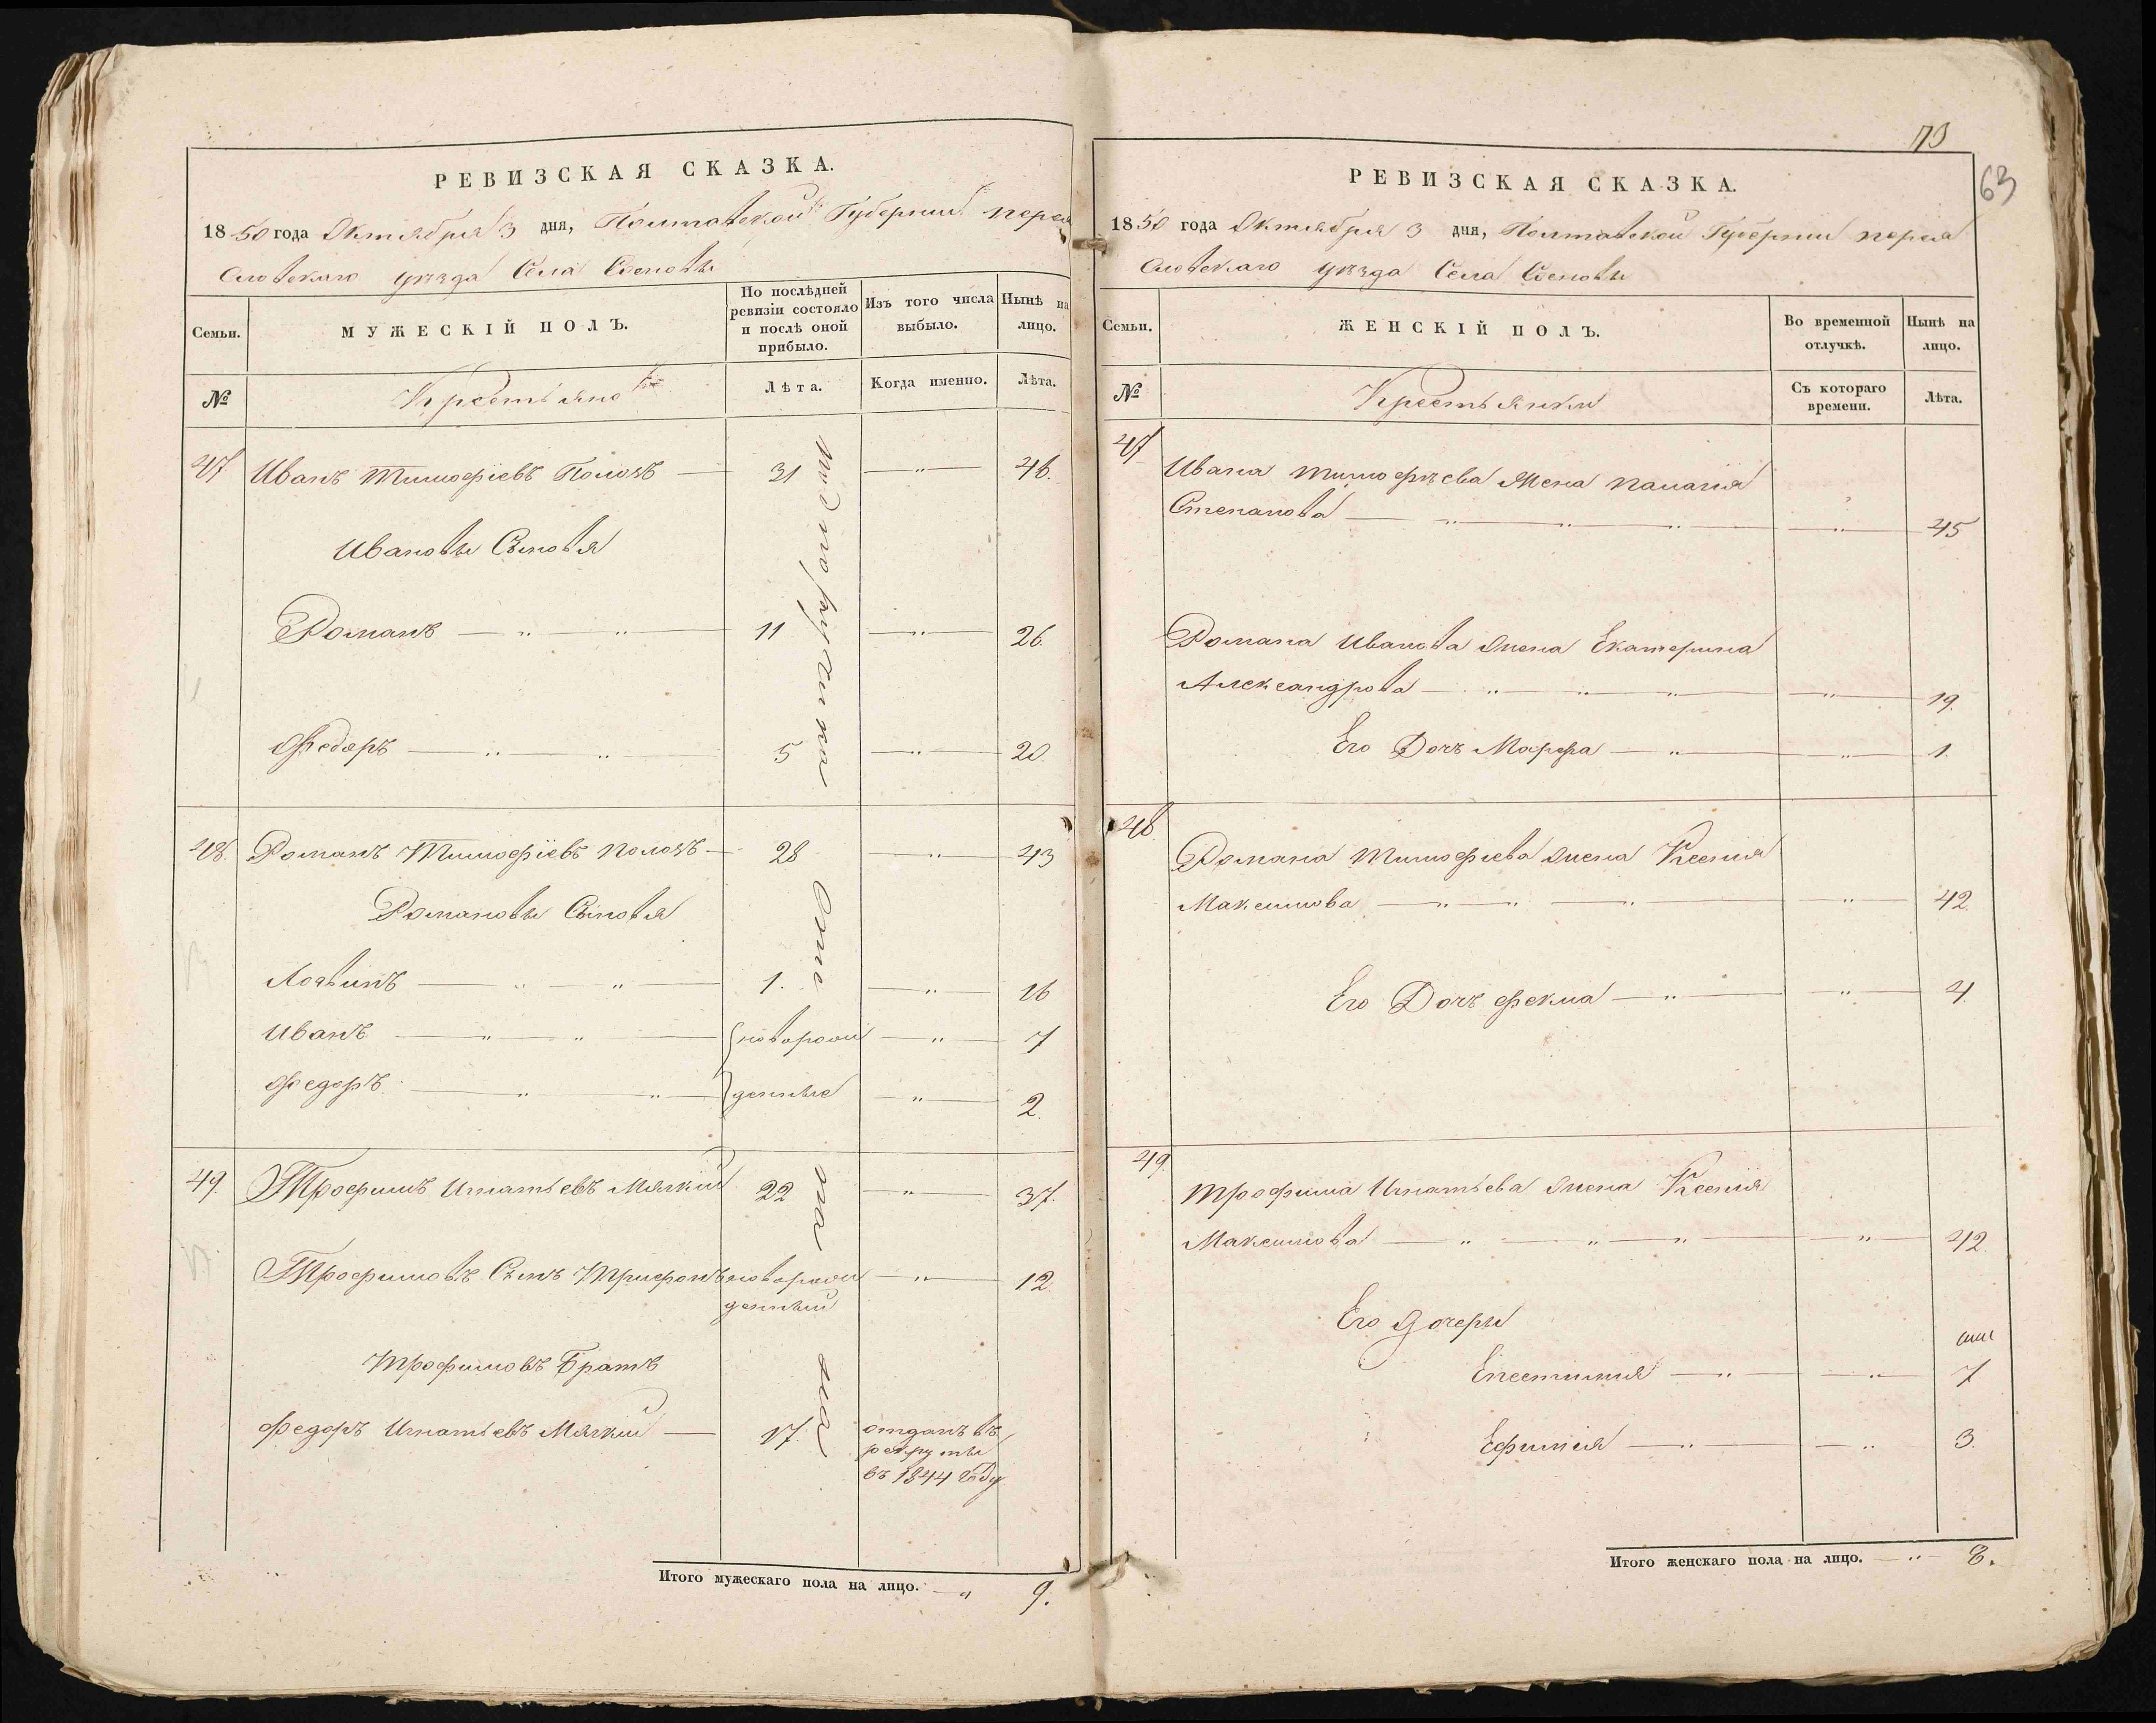 РЕВИЗСКАЯ СКАЗКА.
1850 года Октября 3 дня, Полтавской Губернии Перея
Словскаго уѣзда Села
Семьи.
МУЖЕСКІЙ ПОЛЪ.
По послѣдней ревизіи состояло и послѣ оной прибыло.
Изъ того числа выбыло.
Нынѣ на лицо.
№
Лѣта.
Когда именно.
Лѣта.
47. Иванъ Тимофіевъ 31 46.
Ивановы Сыновя
Романъ 11 26.
Федоръ 5 20.
48. Романъ Тимофіевъ 28 43
Романовы Сыновя
Логвинъ 1. 16
Иванъ новорож 7
Федоръ денные 2.
49. Трофимъ Игнатьевъ Мягкий 22 37.
Трофимовъ Сынъ Трифонъ новорож 12
денный
Трофимовъ Братъ
Федоръ Игнатьевъ Мягкий 17. отданъ въ
рекруты
въ 1844 году
Итого мужескаго пола на лицо. 9.
73
63
РЕВИЗСКАЯ СКАЗКА.
1850 года Октября 3 дня, Полтавской Губернии Перея
Словскаго уѣзда Села
Семьи.
ЖЕНСКІЙ ПОЛЪ.
Во временной отлучкѣ.
Нынѣ на лицо.
№
Крестьянки
Съ котораго времени.
Лѣта.
47
Ивана Тимофѣева Жена
Степанова 45
Романа Иванова Жена Екатерина
Александрова 19.
Его Дочъ Марфа 1.
48
Романа Тимофіева Жена Ксения
Максимова 42.
Его Дочъ Фекла 4.
49.
Трофима Игнатьева Жена Ксения
Максимова 42.
Его дочеры
7
Ефимия 3.
Итого женскаго пола на лицо. 8.